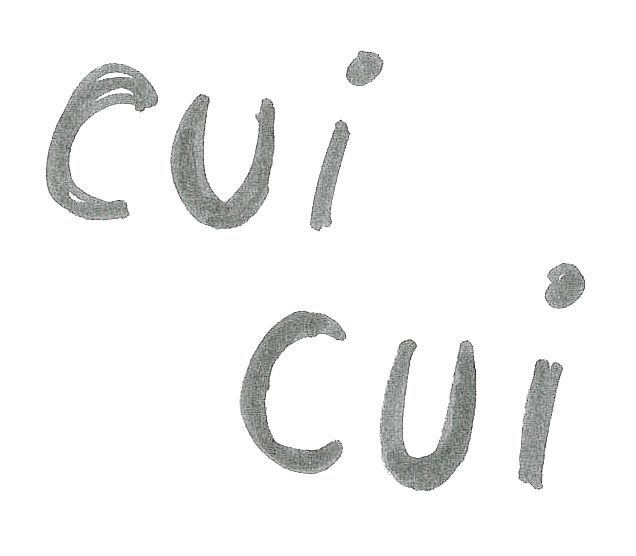 cui
cui